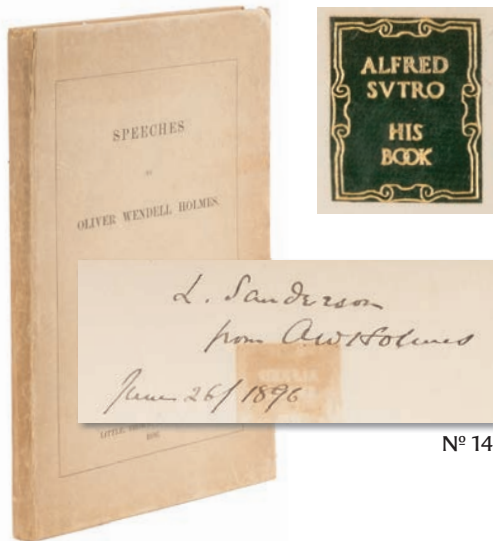 SPEECHES
BY
OLIVER WENDELL HOLMES.
ALFRED
SVTRO
HIS
BOOK
L. Sanderson
from O.W. Holmes
June 26/ 1896
ALFRED
LITTLE,
Nº 14